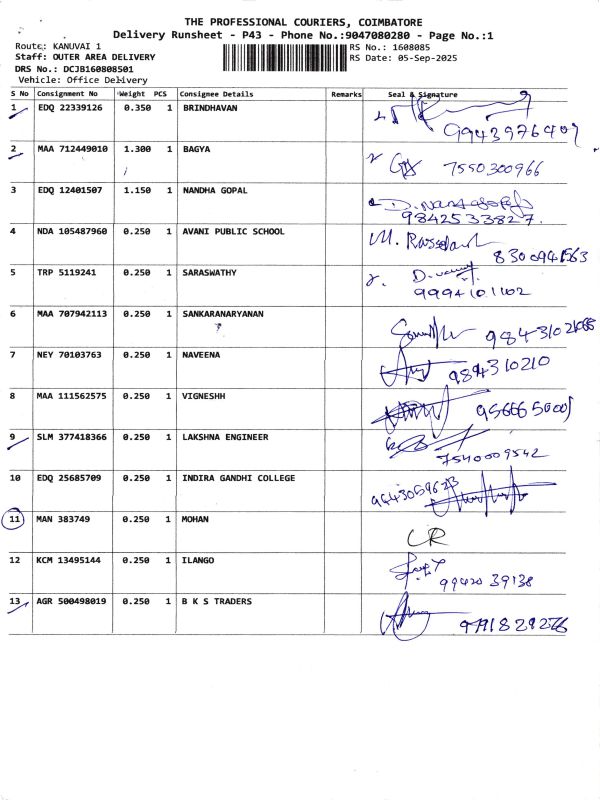 THE PROFESSIONAL COURIERS, COIMBATORE
Delivery Runsheet - P43 - Phone No.:9047080280 - Page No.:1
Route: KANUVAI 1
RS No.: 1608085
Staff: OUTER AREA DELIVERY
RS Date: 05-Sep-2025
DRS No.: DCJB160808501
Vehicle: Office Delivery
S No Consignment No Weight PCS Consignee Details Remarks Seal & Signature
1 EDQ 22339126 0.350 1 BRINDHAVAN
9943976409
2 MAA 712449010 1.300 1 BAGYA 7550300966
3 EDQ 12401507 1.150 1 NANDHA GOPAL
9842533827
4 NDA 105487960 0.250 1 AVANI PUBLIC SCHOOL M.
8300941563
5 TRP 5119241 0.250 1 SARASWATHY D.
9994101102
6 MAA 707942113 0.250 1 SANKARANARYANAN
7 NEY 70103763 0.250 1 NAVEENA 984310210
8 MAA 111562575 0.250 1 VIGNESHH
9 SLM 377418366 0.250 1 LAKSHNA ENGINEER
7540009542
10 EDQ 25685709 0.250 1 INDIRA GANDHI COLLEGE
9443059623
11 MAN 383749 0.250 1 MOHAN
CR
12 KCM 13495144 0.250 1 ILANGO
99420 39138
13 AGR 500498019 0.250 1 B K S TRADERS
9791829276